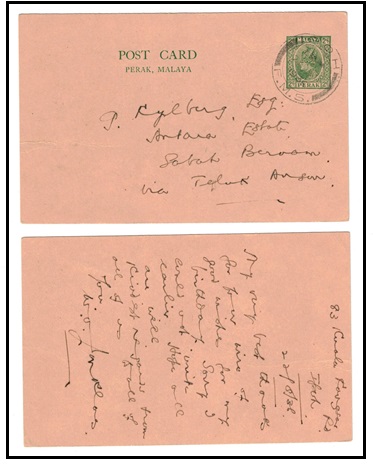 POST CARD
PERAK, MALAYA
MALAYA
PERAK
F.M.S.
P. Rylberg, Esq.
Antara Estate.
Sabak Bernam.
via Teluk Anson.
83 Kuala Kangsar
Ipoh. Rd.
22/8/38.
My very best thanks
for your wire of
good wishes for my
birthday. Sorry I
could not write
earlier. Hope all
are well.
Kindest regards from
all of us to all of
you.